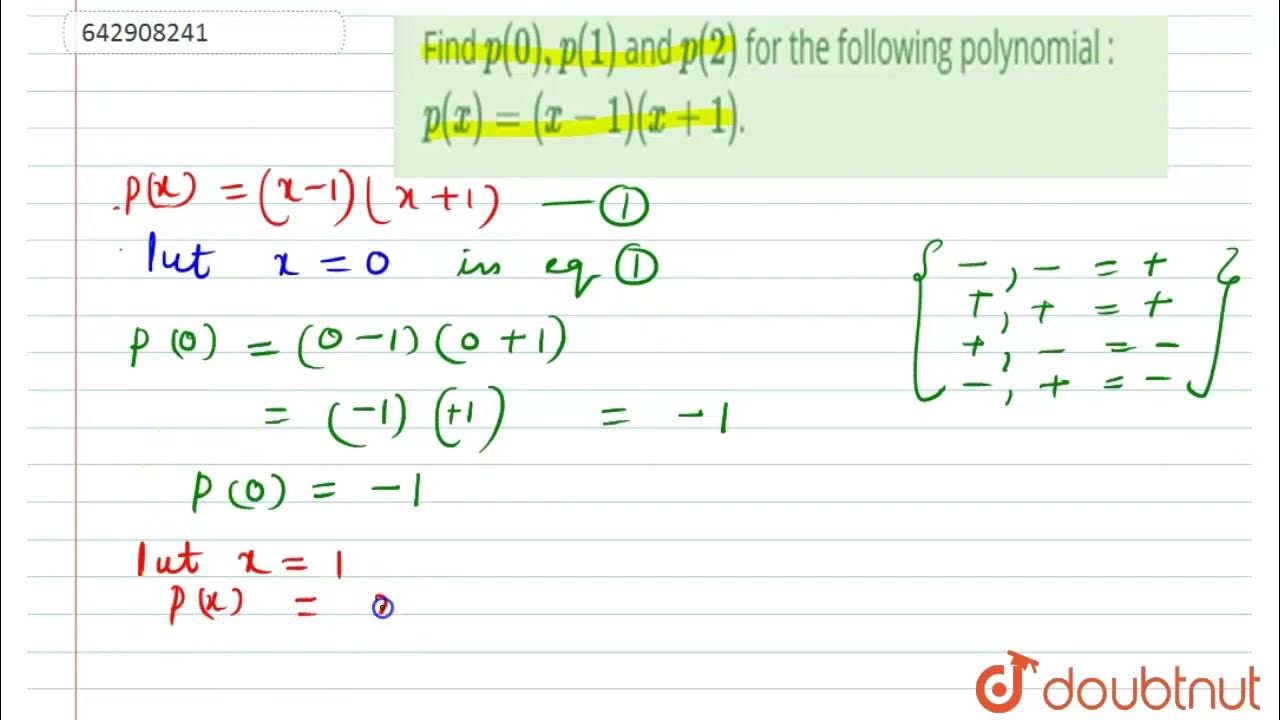 642908241
Find p(0), p(1) and p(2) for the following polynomial :
p(x) = (x − 1)(x + 1).
p(x) = (x-1)(x+1) — ①
Put x = 0 in eq ①
p(0) = (0-1)(0+1)
= (-1)(+1) = -1
p(0) = -1
Put x = 1
p(x) =
{ -, - = +
+, + = +
+, - = -
-, + = - }
doubtnut